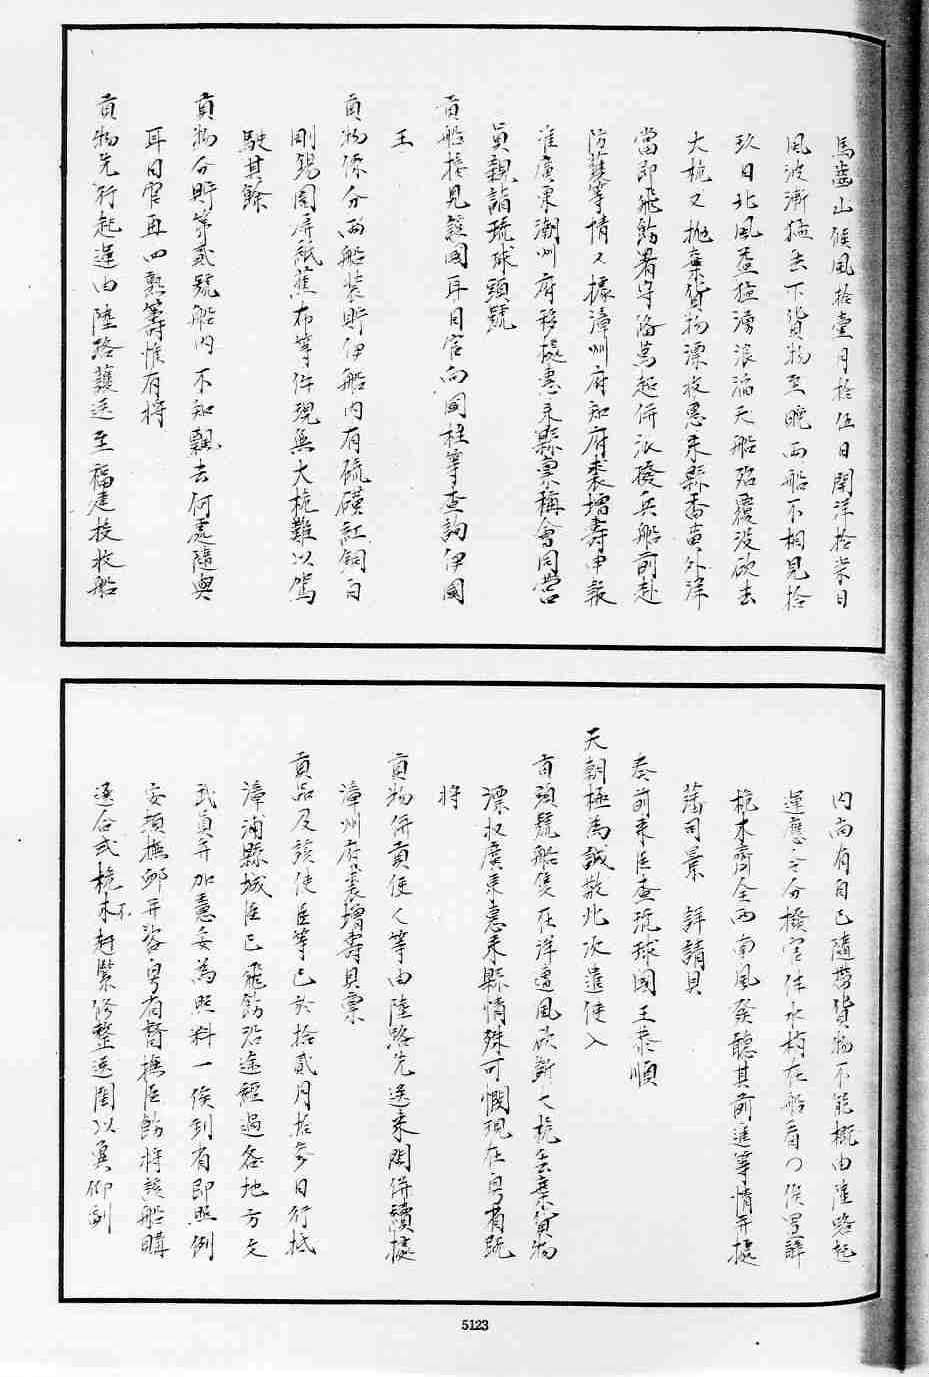 馬齒山候風拾壹月拾伍日開洋拾柒日
風波漸猛去下貨物至晚兩船不相見拾
玖日北風盛猛湧浪滔天船殆覆沒砍去
大桅又抛棄貨物漂收惠来縣番亶外洋
當即飛飭署守備萬起併派撥兵船前赴
防護等情又據漳州府知府裘增壽申報
准廣東潮州府移據惠来縣稟稱會同營
員親詣琉球頭號
貢船接見該國耳目官向國柱等查詢伊國
王
貢物係分兩船裝貯伊船内有硫磺紅銅白
剛錫圍屏紙蕉布等件現無大桅難以駕
駛其餘
貢物分貯第貳號船内不知飄去何處隨與
耳目官再四熟籌惟有將
貢物先行起運由陸路護送至福建投收船
内尚有自己隨帶貨物不能概由陸路起
運應令分撥官伴水梢在船看守俟粤譯
桅木齊全西南風發聽其前進等情并據
藩司景 詳請具
奏前来臣查琉球國王恭順
天朝極為誠敬此次進使入
貢頭號船隻在洋遭風砍斷大桅丟棄貨物
漂收廣東惠来縣情殊可憫現在粤省既
將
貢物併貢使人等由陸路先送来閩併續據
漳州府裘增壽具稟
貢品及該使臣等已於拾貳月拾參日行抵
漳浦縣城臣已飛飭沿途經過各地方文
武員弁加意妥為照料一俟到省即照例
安頓撫卹并咨粤省督撫臣飭將該船購
選合式桅木趕緊修整送閩以兾仰副
5123